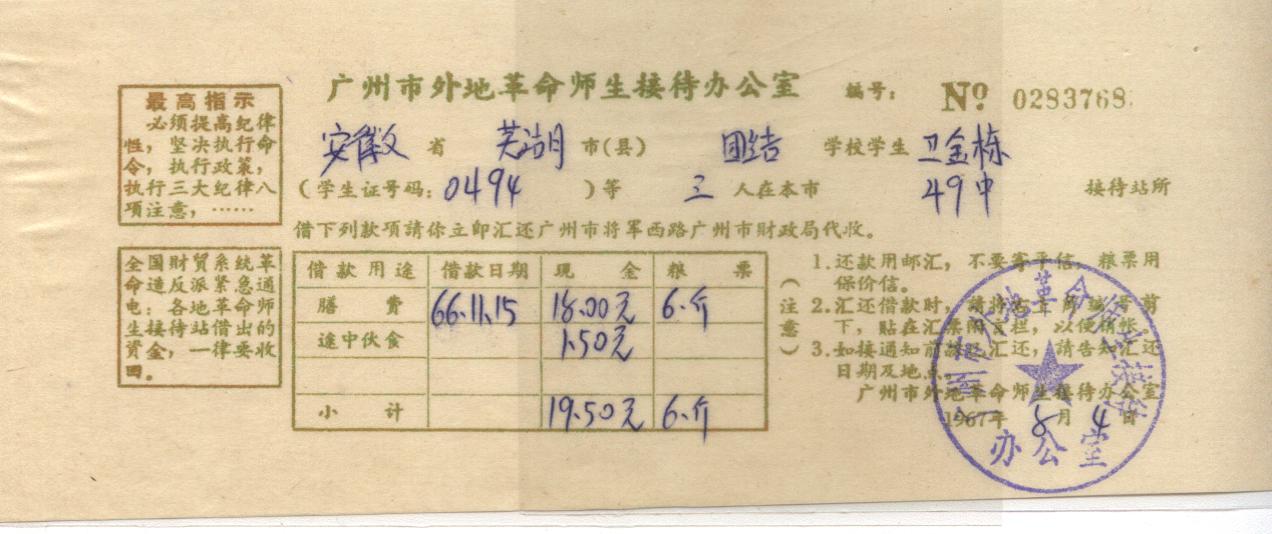 广州市外地革命师生接待办公室 编号: № 0283768
最高指示
必须提高纪律
性，坚决执行命
令，执行政策，
执行三大纪律八
项注意，……
安徽 省 芜湖 市(县) 团结 学校学生 卫金栋
(学生证号码: 0494 )等 三 人在本市 49中 接待站所
借下列款项請你立即汇还广州市将军西路广州市財政局代收。
全国財貿系統革
命造反派紧急通
电：各地革命师
生接待站借出的
資金，一律要收
回。
借款用途 借款日期 現金 粮票
膳費 66.11.15 18.00元 6.斤
途中伙食 1.50元
小計 19.50元 6.斤
(注意)
1.还款用邮汇，不要寄平信，粮票用
保价信。
2.汇还借款时，請将右上角編号剪
下，貼在汇票附言栏，以便銷帐。
3.如接通知前款已汇还，請告知汇还
日期及地点。
广州市外地革命师生接待办公室
1967年 8月 4日
广州外地革命师生接待
办公室